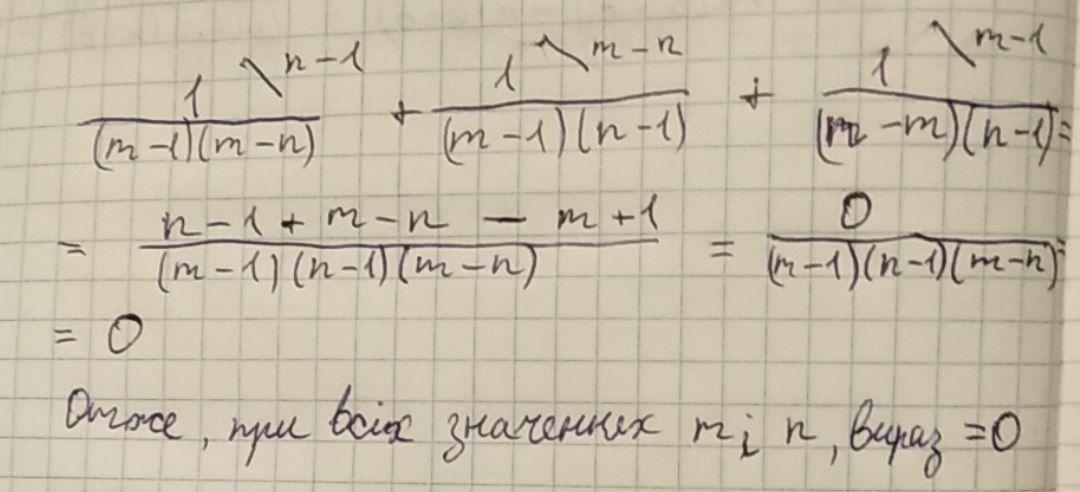 1 \ n-1 / (m-1)(m-n) + 1 \ m-n / (m-1)(n-1) + 1 \ m-1 / (n-m)(n-1) =
= n-1+m-n-m+1 / (m-1)(n-1)(m-n) = 0 / (m-1)(n-1)(m-n) =
= 0
Отже, при всіх значеннях m і n, вираз =0